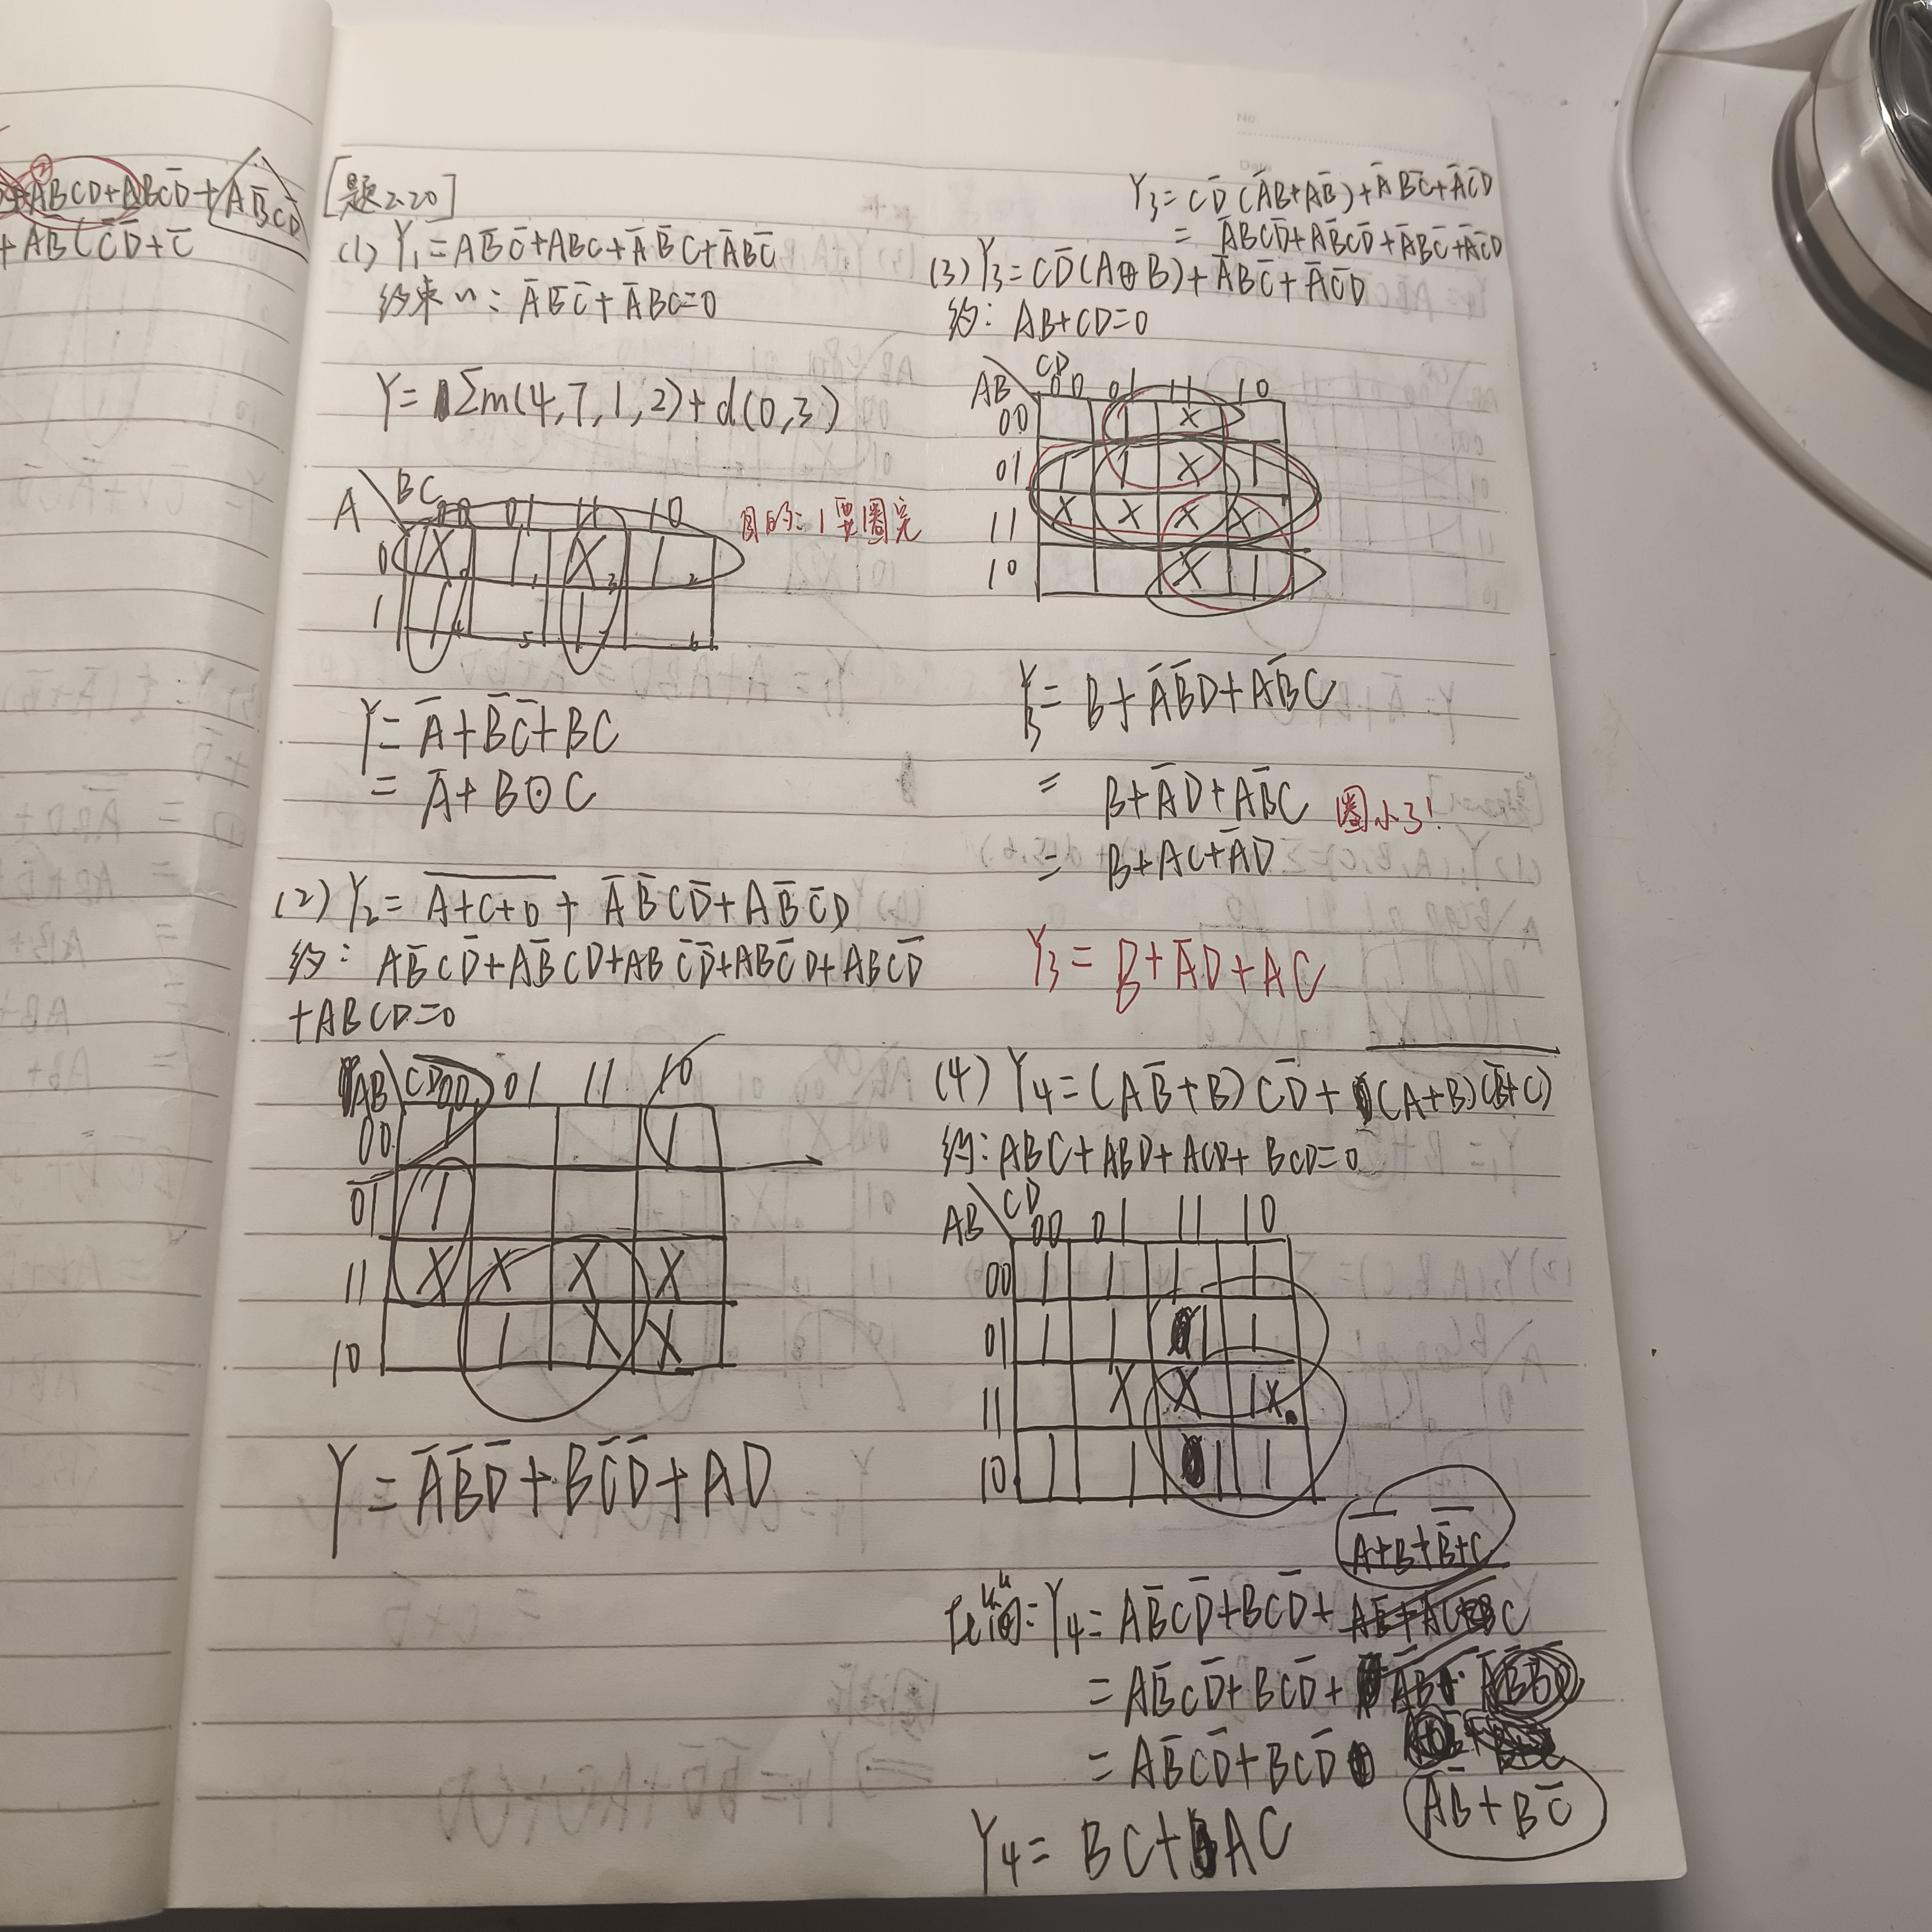 +A̅BCD+ABCD̅+AB̅CD̅
+AB(C̅D̅+C̅
[题2.20]
(1) Y₁=AB̅C̅+ABC+A̅B̅C+A̅BC̅
约束〃: A̅B̅C̅+A̅BC=0
Y=Σm(4,7,1,2)+d(0,3)
A\BC 00 01 11 10
0 X₀ 1₁ X₃ 1₂
1 1₄ 5 1₇ 6
目的: 1要圈完
Y=A̅+B̅C̅+BC
=A̅+B⊙C
(2) Y₂=\overline{A+C+D}+A̅B̅CD̅+AB̅C̅D
约: AB̅CD̅+AB̅CD+ABC̅D̅+ABC̅D+ABCD̅
+ABCD=0
AB\CD 00 01 11 10
00 1 1
01 1
11 X X X X
10 1 X X
Y=A̅B̅D̅+BC̅D̅+AD
Y₃=CD̅(A̅B+AB̅)+A̅BC̅+A̅C̅D
=A̅BCD̅+AB̅CD̅+A̅BC̅+A̅C̅D
(3) Y₃=CD̅(A⊕B)+A̅BC̅+A̅C̅D
约: AB+CD=0
AB\CD 00 01 11 10
00 1 X
01 1 1 X 1
11 X X X X
10 X 1
Y₃=B+A̅B̅D+AB̅C
=B+A̅D+AB̅C 圈小了!
=B+AC+A̅D
Y₃=B+A̅D+AC
(4) Y₄=(AB̅+B)CD̅+\overline{(A+B)(B̅+C)}
约: ABC+ABD+ACD+BCD=0
AB\CD 00 01 11 10
00 1 1 1 1
01 1 1 1 1
11 X X 1X
10 1 1 1 1
\overline{A+B}+\overline{B̅+C}
化简: Y₄=AB̅CD̅+BCD̅+
=AB̅CD̅+BCD̅+
=AB̅CD̅+BCD̅
A̅B̅+BC̅
Y₄=BC+AC